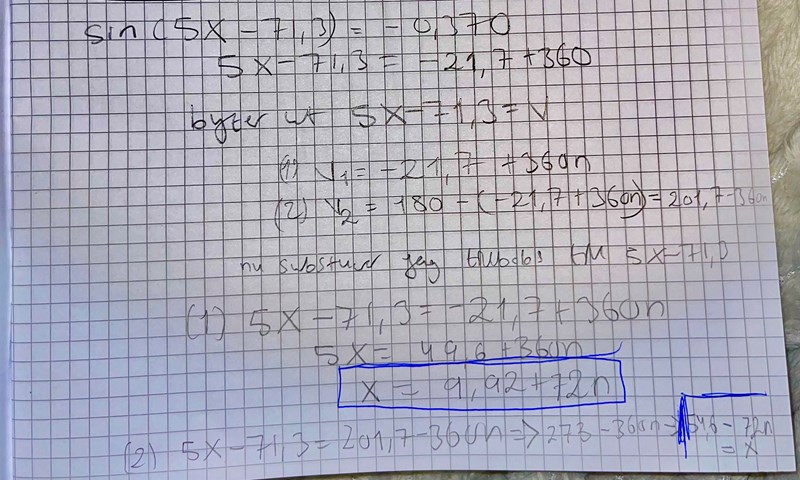 sin(5x-71,3) = -0,370
5x-71,3 = -21,7+360
byter ut 5x-71,3 = V
(1) V₁ = -21,7 +360n
(2) V₂ = 180 - (-21,7+360n) = 201,7-360n
nu jag 5x-71,
(1) 5x-71,3 = -21,7+360n
5x = 49,6+360n
x = 9,92+72n
(2) 5x-71,3 = 201,7-360n => 273-360n => 54,6-72n
= x